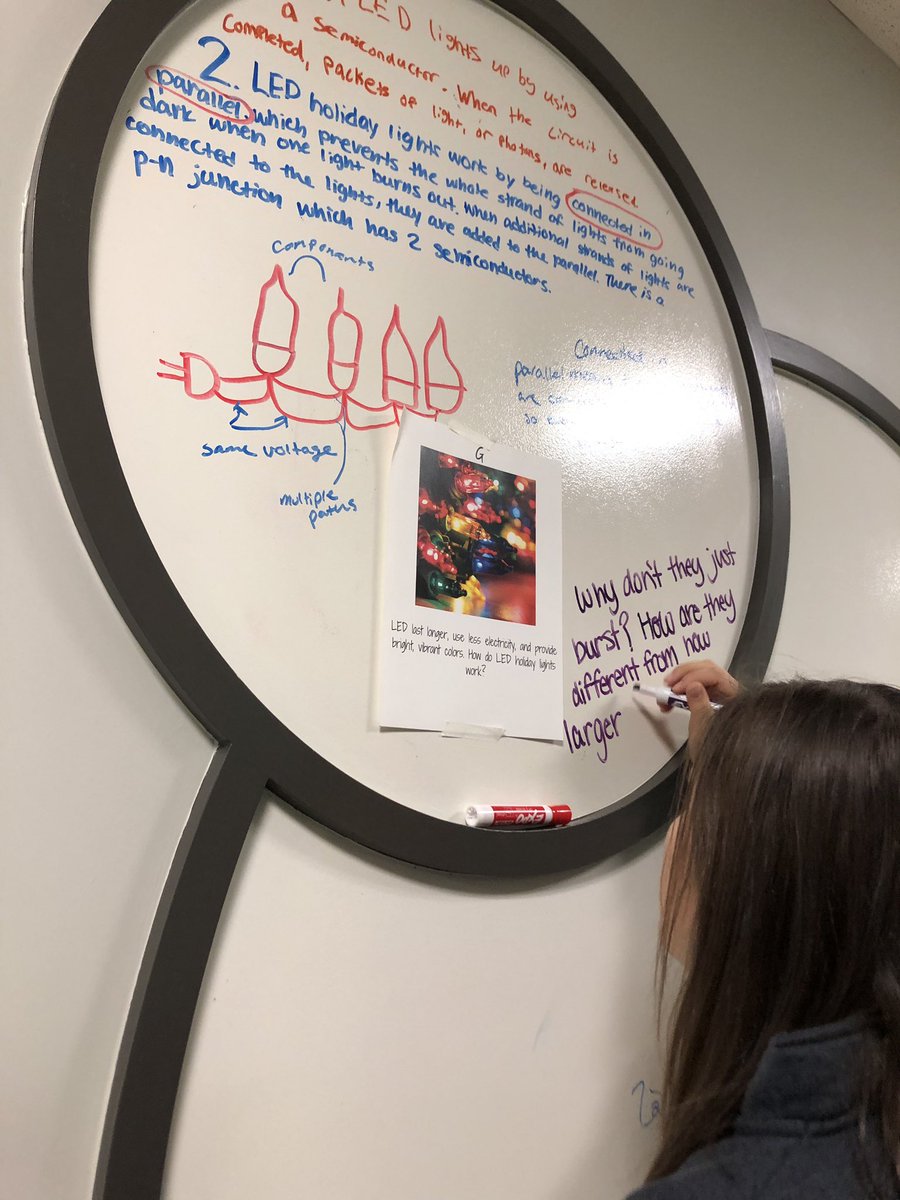 LED lights up by using
a semiconductor. When the circuit is
completed, packets of light, or photons, are released
2. LED holiday lights work by being connected in
parallel, which prevents the whole strand of lights from going
dark when one light burns out. When additional strands of lights are
connected to the lights, they are added to the parallel. There is a
p-n junction which has 2 semiconductors.
components
same voltage
multiple
paths
Connected in
parallel means
are
so
G
LED last longer, use less electricity, and provide
bright, vibrant colors. How do LED holiday lights
work?
Why don't they just
burst? How are they
different from now
larger
EXPO